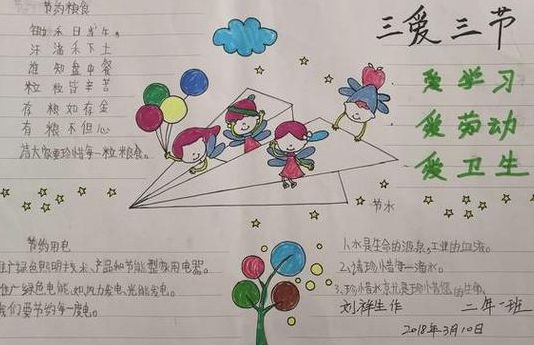 节约粮食
锄禾日当午。
汗滴禾下土
谁知盘中餐
粒粒皆辛苦
存粮如存金
有粮不但心
请大家要珍惜每一粒粮食。
三爱三节
爱学习
爱劳动
爱卫生
节水
1.水是生命的源泉,工业的血液。
2.请珍惜每一滴水。
3.珍惜水就是珍惜您的生命。
节约用电
推广绿色照明技术、产品和节能型家用电器。
推广绿色电能,如风力发电、光能发电。
我们要节约每一度电。
刘祥生作
二年一班
2018年3月10日